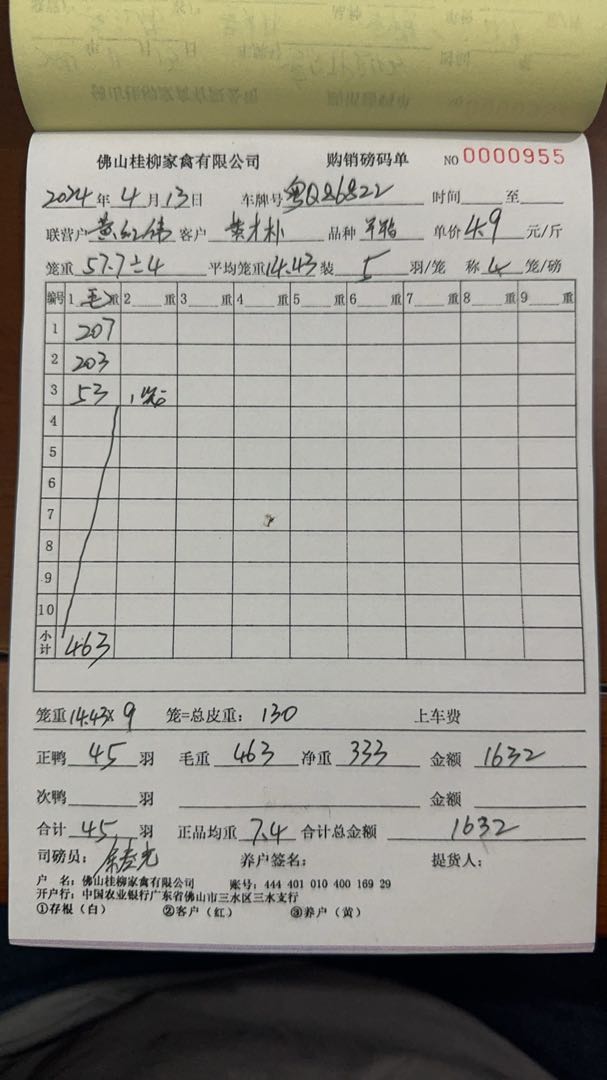 佛山桂柳家禽有限公司 购销磅码单 NO 0000955
2024 年 4 月 13 日 车牌号 粤Q86822 时间 至
联营户 客户 品种 单价 4.9 元/斤
笼重 57.7÷4 平均笼重 14.43 装 5 羽/笼 称 4 笼/磅
编号 1 毛 重 2 重 3 重 4 重 5 重 6 重 7 重 8 重 9 重
1 207
2 203
3 53
4
5
6
7
8
9
10
小计 463
笼重 14.43× 9 笼=总皮重: 130 上车费
正鸭 45 羽 毛重 463 净重 333 金额 1632
次鸭 羽 金额
合计 45 羽 正品均重 7.4 合计总金额 1632
司磅员: 养户签名: 提货人:
户 名: 佛山桂柳家禽有限公司 账号: 444 401 010 400 169 29
开户行: 中国农业银行广东省佛山市三水区三水支行
①存根(白) ②客户(红) ③养户(黄)